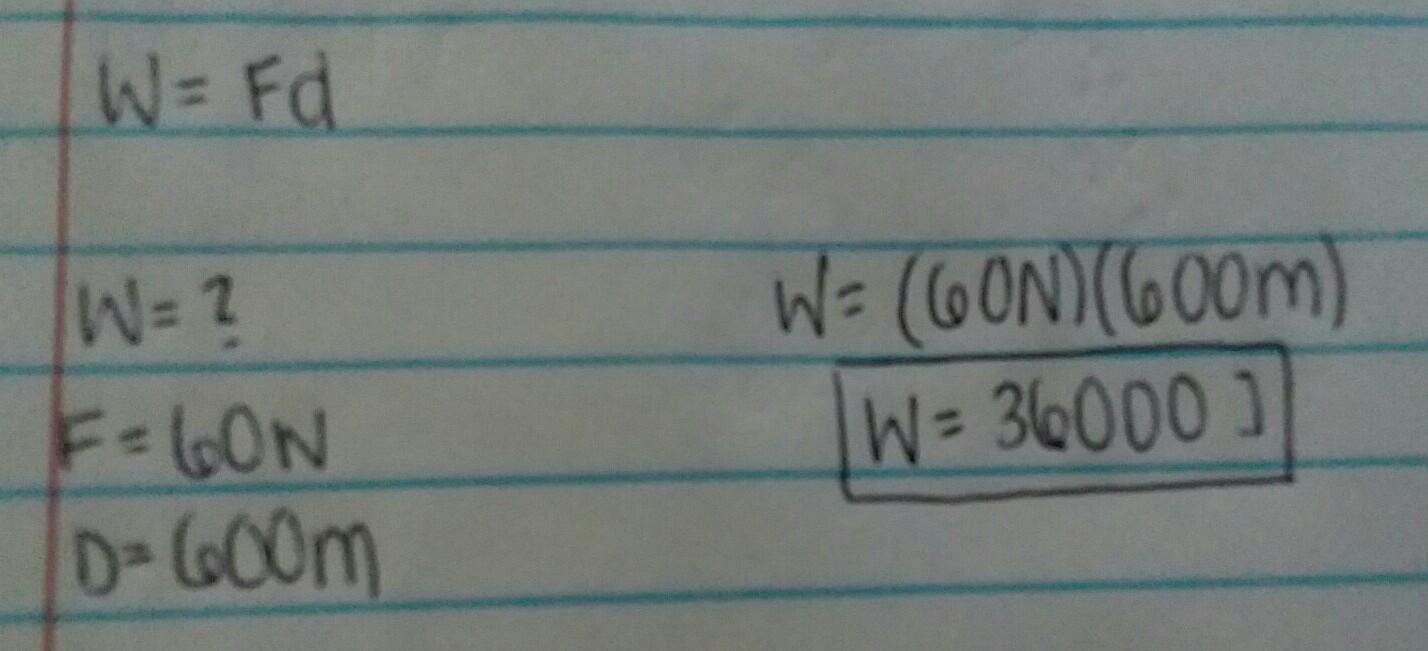 W= Fd
W= ?
F= 60N
D= 600m
W= (60N)(600m)
W= 36000 J